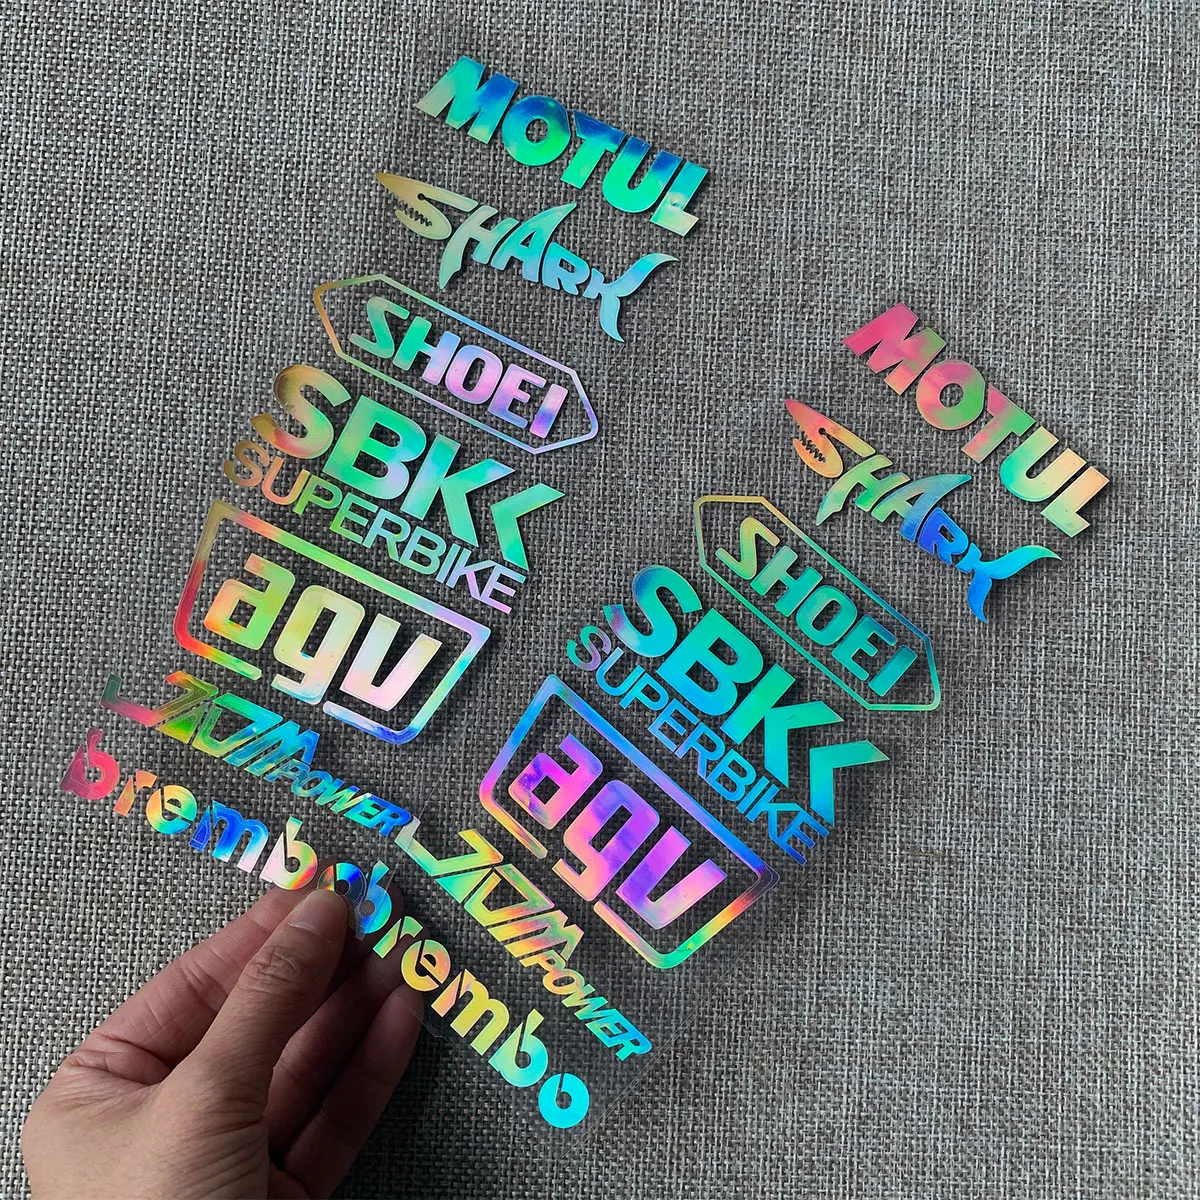 MOTUL
SHARK
SHOEI
SBK
SUPERBIKE
agv
POWER
brembo
MOTUL
SHARK
SHOEI
SBK
SUPERBIKE
agv
POWER
brembo